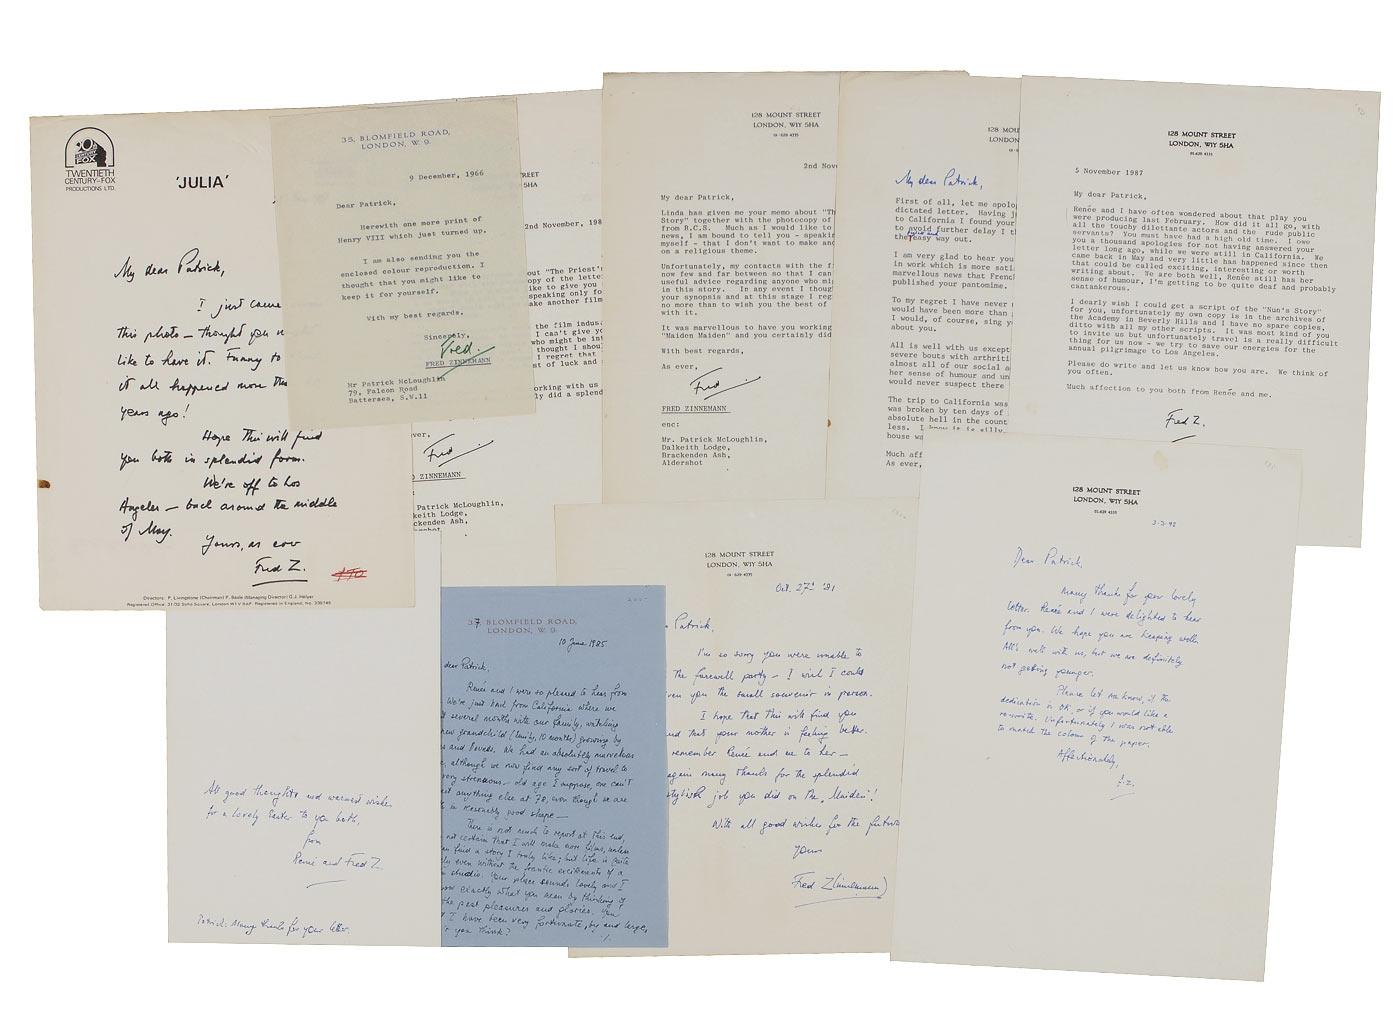 20th
CENTURY
FOX
TWENTIETH
CENTURY-FOX
PRODUCTIONS LTD.
'JULIA'
My dear Patrick,
I just came
this photo – thought you
like to have it. Funny to
it all happened more than
years ago!
Hope this will find
you both in splendid form.
We're off to Los
Angeles – back around the middle
of May.
Yours, as ever
Fred Z.
Directors: P. Livingstone (Chairman) F. Basile (Managing Director) G.J. Helyer
Registered Office: 31/32 Soho Square, London W1V 6AP. Registered in England, No.
35, BLOMFIELD ROAD,
LONDON, W. 9.
9 December, 1966
Dear Patrick,
Herewith one more print of
Henry VIII which just turned up.
I am also sending you the
enclosed colour reproduction. I
thought that you might like to
keep it for yourself.
With my best regards,
Sincerely,
Fred.
FRED ZINNEMANN
Mr Patrick McLoughlin
79, Falcon Road
Battersea, S.W.11
REET
5HA
2nd November, 198
out "The Priest's
opy of the letter
like to give you
speaking only for
ake another film
the film indus
I can't give yo
who might be in
thought I shou
I regret that
st of luck and
orking with us
ly did a splend
ver,
Fred
D ZINNEMANN
Patrick McLoughlin,
keith Lodge,
ckenden Ash,
128 MOUNT STREET
LONDON, W1Y 5HA
01-629 4335
2nd Nove
My dear Patrick,
Linda has given me your memo about "Th
Story" together with the photocopy of
from R.C.S. Much as I would like to
news, I am bound to tell you - speaki
myself - that I don't want to make ano
on a religious theme.
Unfortunately, my contacts with the fi
now few and far between so that I can
useful advice regarding anyone who mig
in this story. In any event I thoug
your synopsis and at this stage I reg
no more than to wish you the best of
with it.
It was marvellous to have you working
"Maiden Maiden" and you certainly did
With best regards,
As ever,
Fred
FRED ZINNEMANN
enc:
Mr. Patrick McLoughlin,
Dalkeith Lodge,
Brackenden Ash,
Aldershot
128 MOU
LONDON,
My dear Patrick,
First of all, let me apolog
dictated letter. Having j
to California I found your
to avoid further delay I th
the easy way out.
I am very glad to hear you
in work which is more sati
marvellous news that Frenc
published your pantomime.
To my regret I have never
would have been more than
I would, of course, sing y
about you.
All is well with us except
severe bouts with arthriti
almost all of our social a
her sense of humour and un
would never suspect there
The trip to California was
was broken by ten days of
absolute hell in the count
less. I know it is silly
house wa
Much aff
As ever,
128 MOUNT STREET
LONDON, W1Y 5HA
01-629 4335
5 November 1987
My dear Patrick,
Renée and I have often wondered about that play you
were producing last February. How did it all go, with
all the touchy dilettante actors and the rude public
servants? You must have had a high old time. I owe
you a thousand apologies for not having answered your
letter long ago, while we were still in California. We
came back in May and very little has happened since then
that could be called exciting, interesting or worth
writing about. We are both well, Renée still has her
sense of humour, I'm getting to be quite deaf and probably
cantankerous.
I dearly wish I could get a script of the "Nun's Story"
for you, unfortunately my own copy is in the archives of
the Academy in Beverly Hills and I have no spare copies,
ditto with all my other scripts. It was most kind of you
to invite us but unfortunately travel is a really difficult
thing for us now - we try to save our energies for the
annual pilgrimage to Los Angeles.
Please do write and let us know how you are. We think of
you often.
Much affection to you both from Renée and me.
Fred Z.
All good thoughts and warmest wishes
for a lovely Easter to you both,
from
Renée and Fred Z.
Patrick: Many thanks for your letter.
37 BLOMFIELD ROAD,
LONDON, W. 9.
10 June 1985
dear Patrick,
Renée and I were so pleased to hear from
We're just back from California where we
several months with our family, watching
new grandchild (Emily, 10 months) growing by
s and bounds. We had an absolutely marvelous
, although we now find any sort of travel to
very strenuous – old age I suppose, one can't
anything else at 78, even though we are
in reasonably good shape –
There is not much to report at this end,
not certain that I will make more films, unless
find a story I truly like; but life is quite
even without the frantic excitements of a
studio. Your place sounds lovely and I
exactly what you mean by thinking of
the past pleasures and glories. You
I have been very fortunate, by and large,
you think?
128 MOUNT STREET
LONDON, W1Y 5HA
01-629 4335
Oct. 27th '81
Patrick,
I'm so sorry you were unable to
the farewell party – I wish I could
ven you the small souvenir in person.
I hope that this will find you
and that your mother is feeling better.
remember Renée and me to her –
again many thanks for the splendid
job you did on the „Maiden"!
With all good wishes for the future
Yours
Fred Z(innemann)
128 MOUNT STREET
LONDON, W1Y 5HA
01-629 4335
3-3-92
Dear Patrick.
Many thanks for your lovely
letter. Renée and I were delighted to hear
from you. We hope you are keeping well.
All's well with us, but we are definitely
not getting younger.
Please let me know, if the
dedication is OK, or if you would like a
rewrite. Unfortunately I was not able
to match the colour of the paper.
Affectionately,
F.Z.